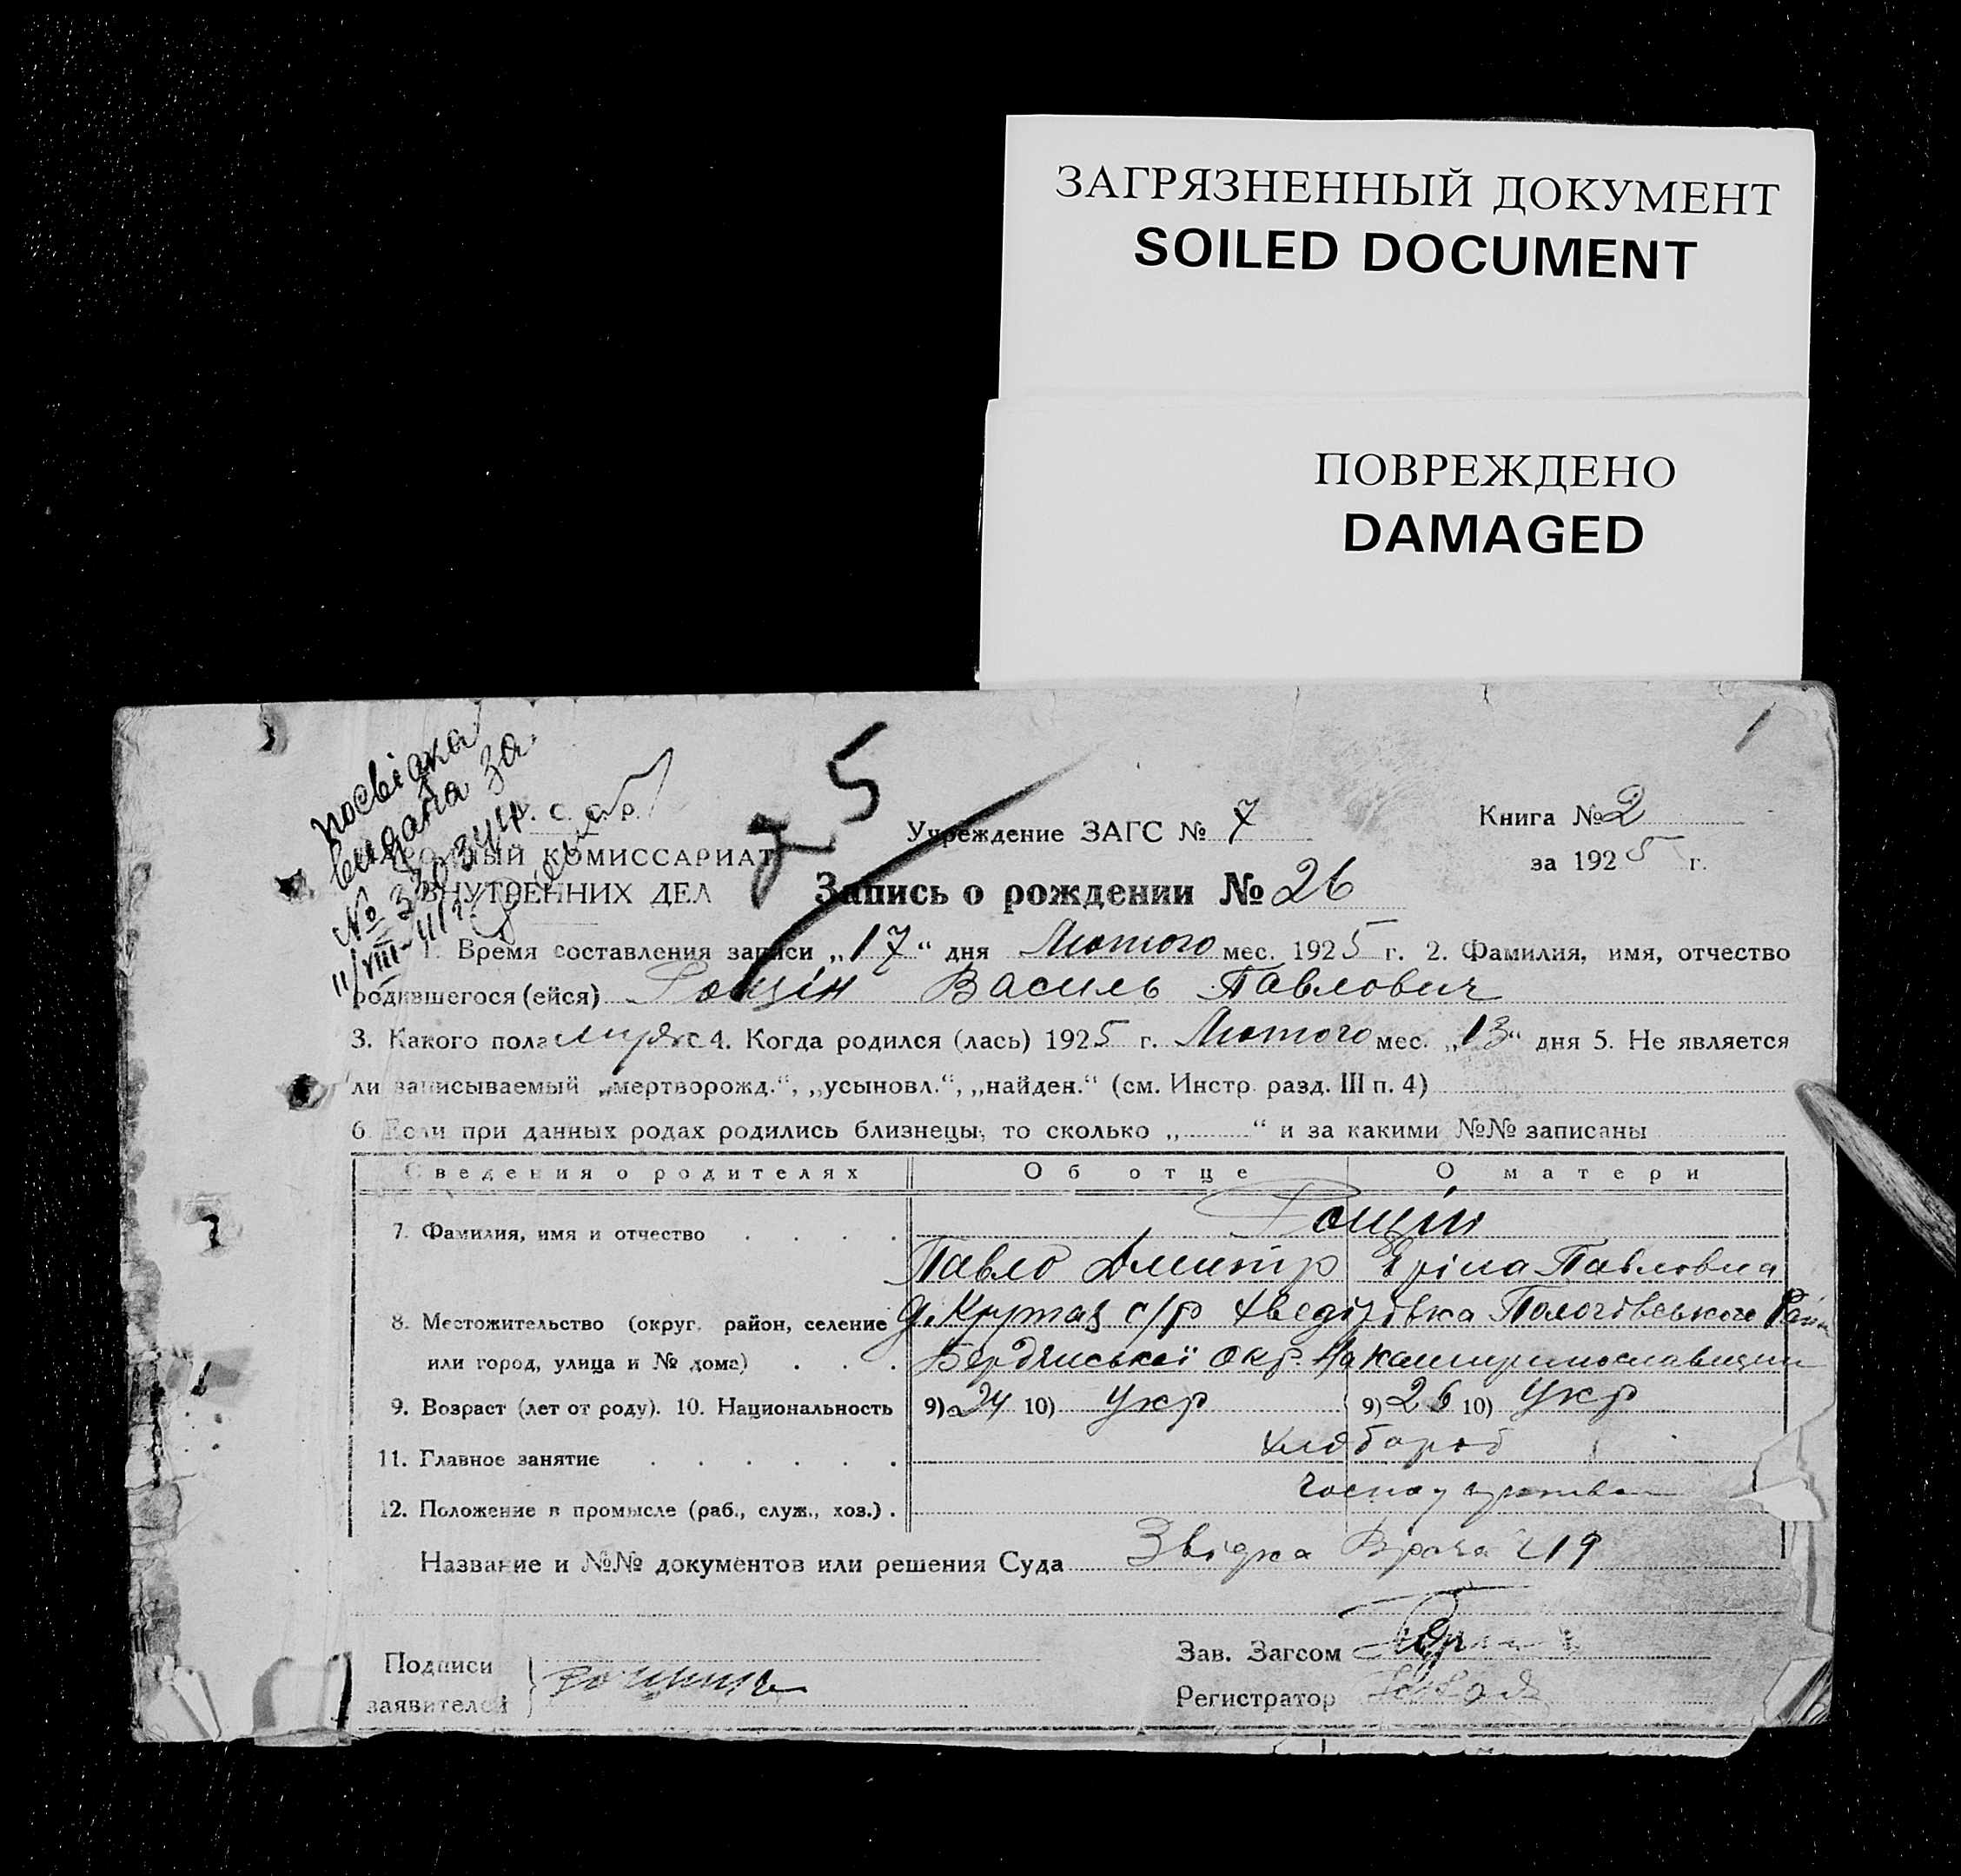 ЗАГРЯЗНЕННЫЙ ДОКУМЕНТ
SOILED DOCUMENT
ПОВРЕЖДЕНО
DAMAGED
1
посвідка
видана за
№ 330
5
С. Р.
КОМИССАРИАТ
ВНУТРЕННИХ ДЕЛ
Учреждение ЗАГС № 7
Книга № 2
за 1925 г.
Запись о рождении № 26
1. Время составления записи „17“ дня Лютого мес. 1925 г. 2. Фамилия, имя, отчество
родившегося (ейся) Рощін Василь Павлович
3. Какого пола 4. Когда родился (лась) 1925 г. Лютого мес. „13“ дня 5. Не является
ли записываемый „мертворожд.“, „усыновл.“, „найден.“ (см. Инстр. разд. III п. 4)
6. Если при данных родах родились близнецы, то сколько „ “ и за какими №№ записаны
Сведения о родителях Об отце О матери
7. Фамилия, имя и отчество Рощін
Павло Дмитр Павловна
8. Местожительство (округ, район, селение с/р Пологовського
или город, улица и № дома) Бердянської окр. на
9. Возраст (лет от роду). 10. Национальность 9) 24 10) Укр 9) 26 10) Укр
11. Главное занятие хлібороб
12. Положение в промысле (раб., служ., хоз.)
Название и №№ документов или решения Суда Звідка Врача 219
Подписи
заявителей
Зав. Загсом
Регистратор